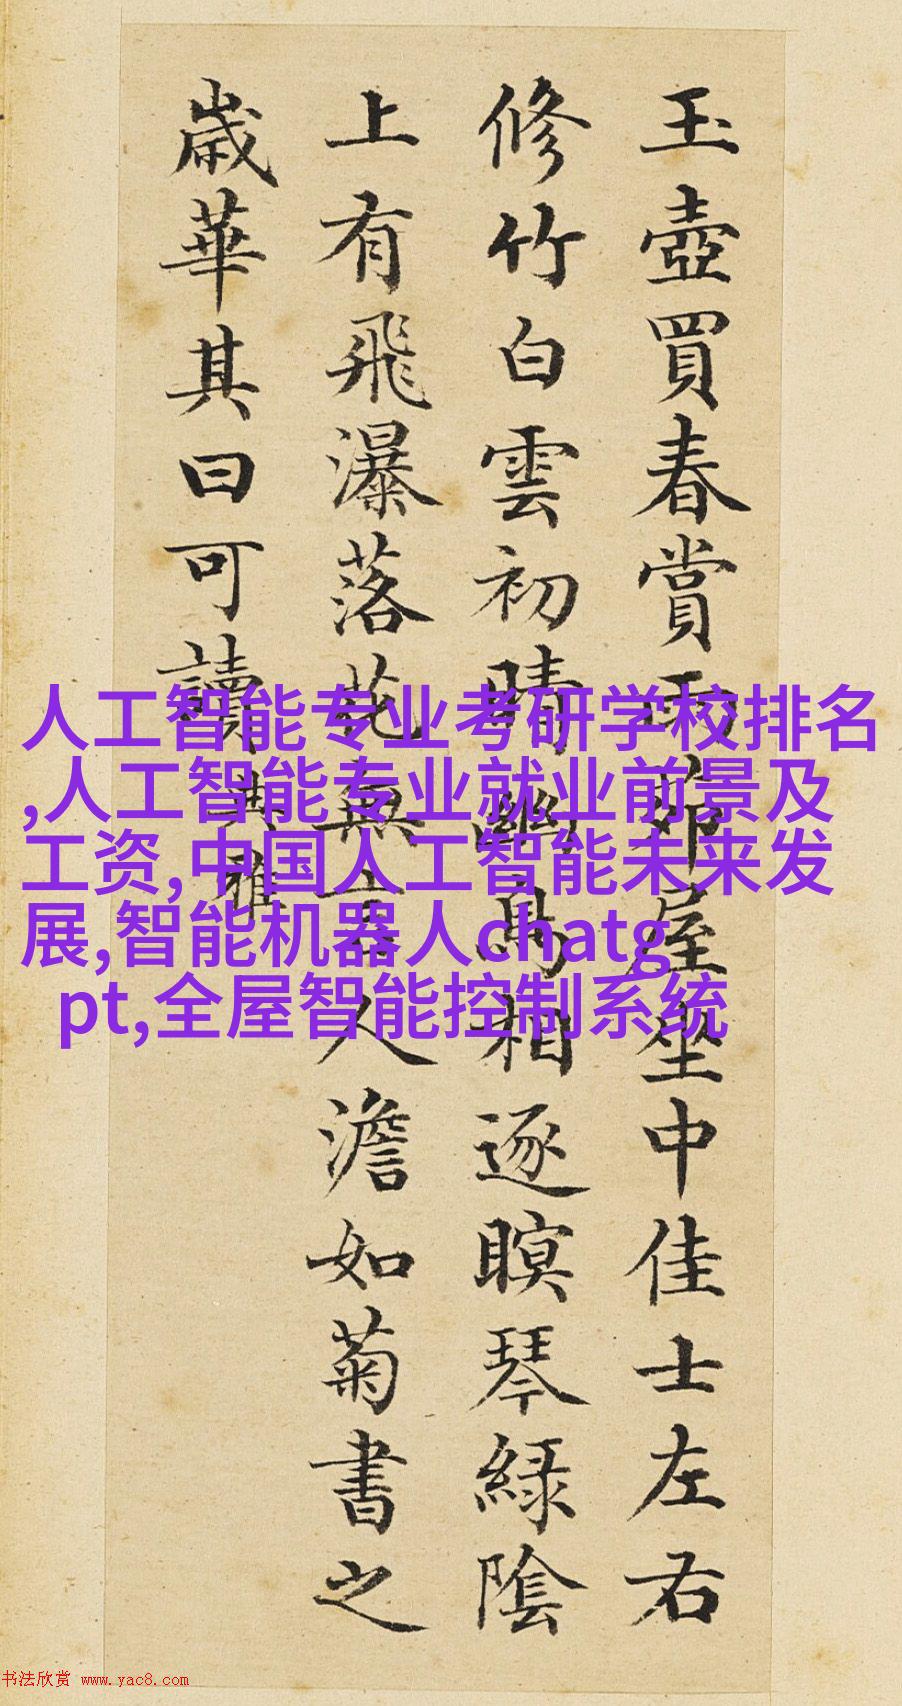 玉壺買春賞雨茆屋坐中佳士左右
修竹白雲初晴幽鳥相逐瞑琴緑陰
上有飛瀑落花無言人澹如菊書之
歲華其曰可讀典雅
人工智能专业考研学校排名
,人工智能专业就业前景及
工资,中国人工智能未来发
展,智能机器人chatg
pt,全屋智能控制系统
书法欣赏 www.yac8.com